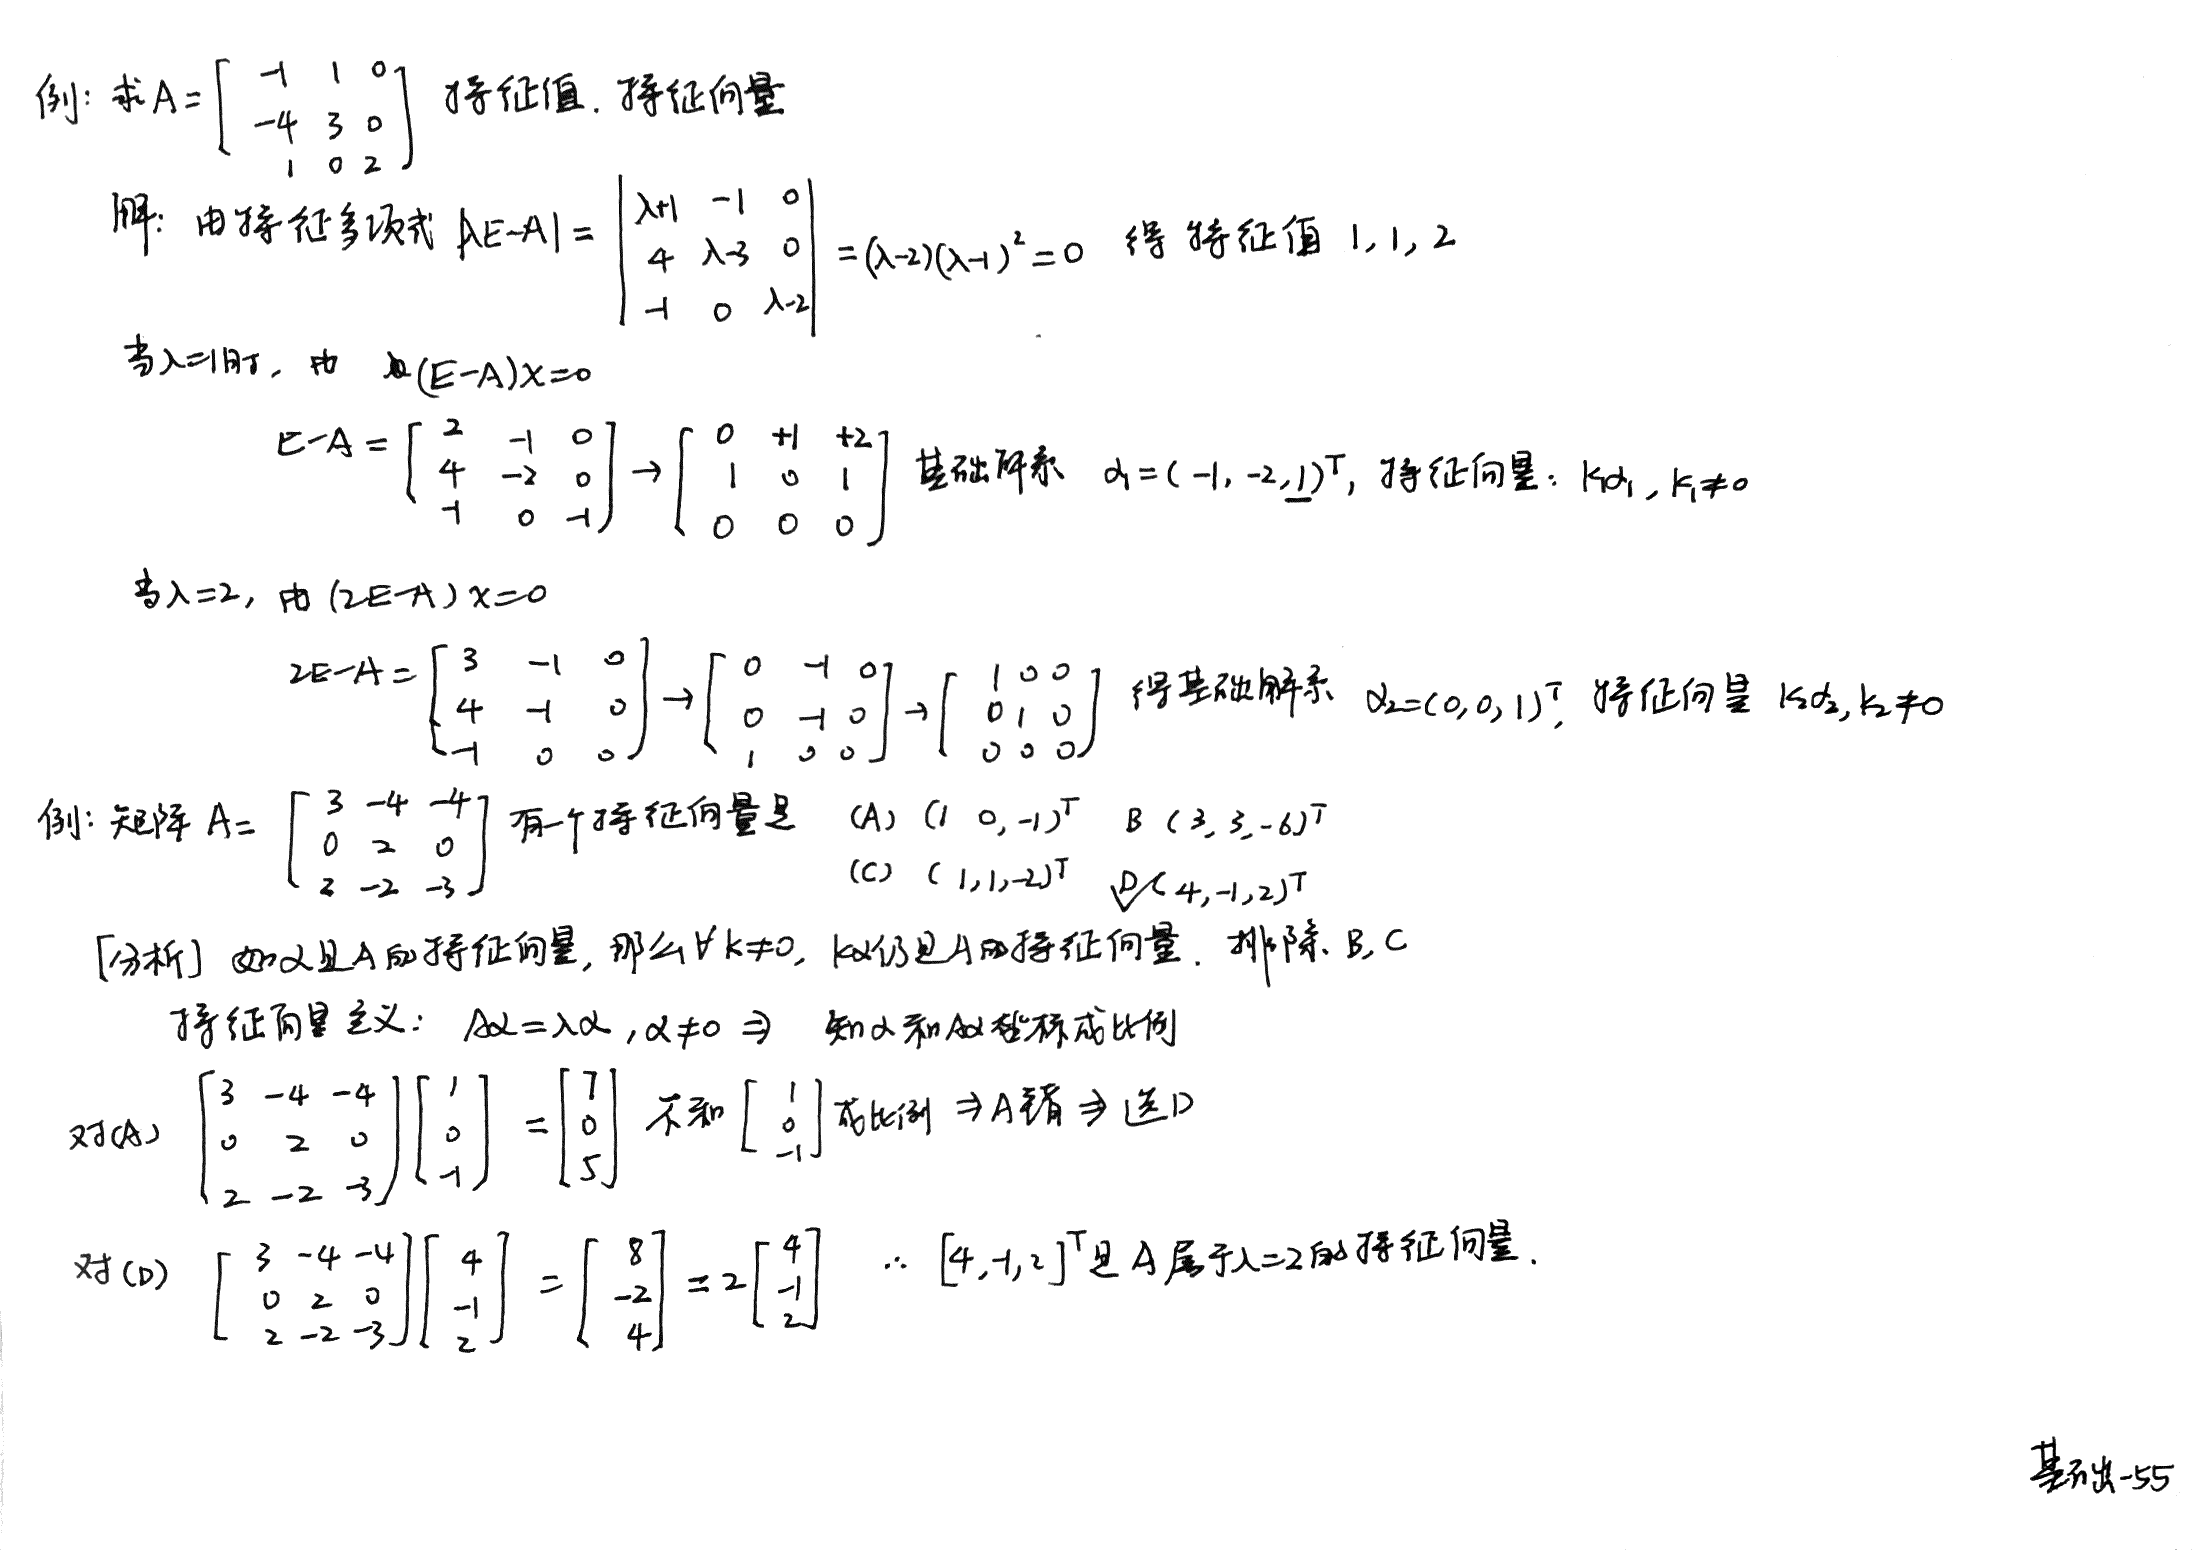 例: 求A= [ -1 1 0 ; -4 3 0 ; 1 0 2 ] 特征值. 特征向量
解: 由特征多项式 |λE-A| = | λ+1 -1 0 ; 4 λ-3 0 ; -1 0 λ-2 | = (λ-2)(λ-1)² = 0 得 特征值 1, 1, 2
当λ=1时, 由 (E-A)x=0
E-A = [ 2 -1 0 ; 4 -2 0 ; -1 0 -1 ] → [ 0 +1 +2 ; 1 0 1 ; 0 0 0 ] 基础解系 α₁=(-1, -2, 1)ᵀ, 特征向量: k₁α₁, k₁≠0
当λ=2, 由(2E-A)x=0
2E-A = [ 3 -1 0 ; 4 -1 0 ; -1 0 0 ] → [ 0 -1 0 ; 0 -1 0 ; 1 0 0 ] → [ 1 0 0 ; 0 1 0 ; 0 0 0 ] 得基础解系 α₂=(0, 0, 1)ᵀ, 特征向量 k₂α₂, k₂≠0
例: 矩阵 A= [ 3 -4 -4 ; 0 2 0 ; 2 -2 -3 ] 有一个特征向量是 (A) (1 0, -1)ᵀ B (3, 3, -6)ᵀ
(C) (1, 1, -2)ᵀ D (4, -1, 2)ᵀ
[分析] 如α是A的特征向量, 那么∀k≠0, kα仍是A的特征向量. 排除. B, C
特征向量定义: Aα=λα, α≠0 ⇒ 知α和Aα坐标成比例
对(A) [ 3 -4 -4 ; 0 2 0 ; 2 -2 -3 ] [ 1 ; 0 ; -1 ] = [ 7 ; 0 ; 5 ] 不和 [ 1 ; 0 ; -1 ] 成比例 ⇒ A错 ⇒ 选D
对(D) [ 3 -4 -4 ; 0 2 0 ; 2 -2 -3 ] [ 4 ; -1 ; 2 ] = [ 8 ; -2 ; 4 ] = 2 [ 4 ; -1 ; 2 ] ∴ [4, -1, 2]ᵀ是A属于λ=2的特征向量.
基础-55